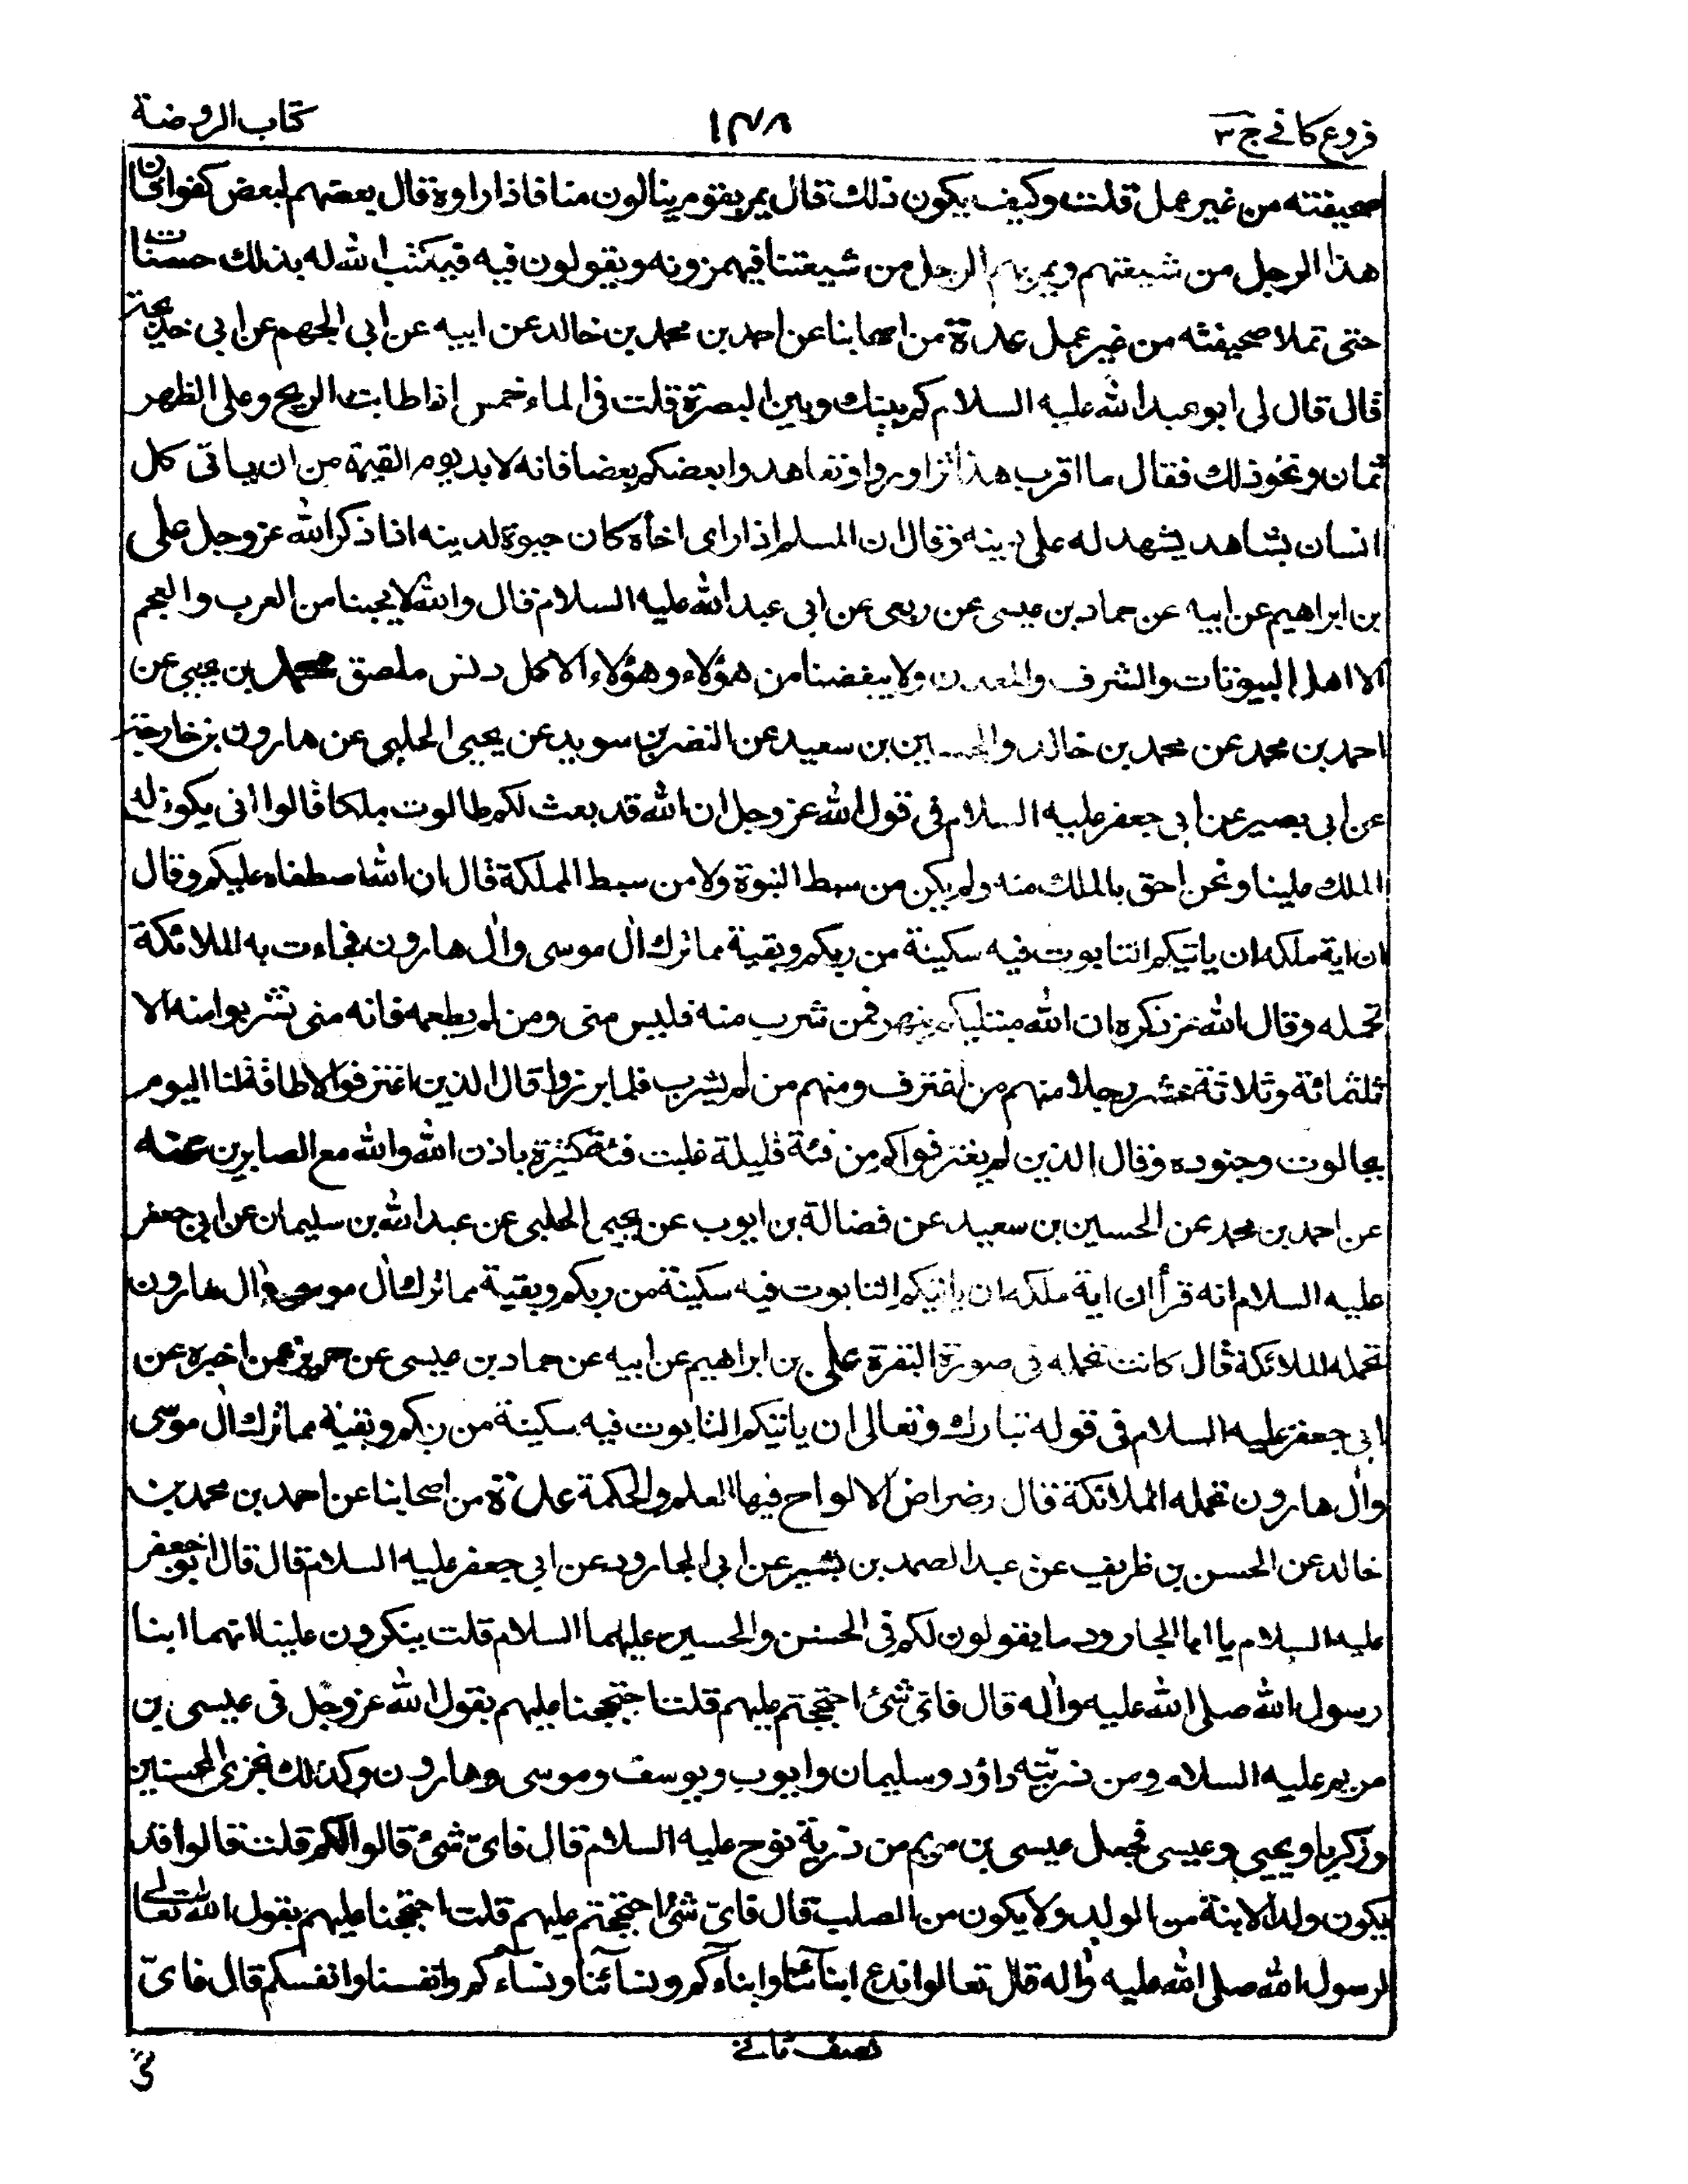 فروع كافي ج ٣
١٤٨
كتاب الروضة
صحيفته من غير عمل قلت وكيف يكون ذلك قال يمر بقوم ينالون منا فاذا راوه قال بعضهم لبعض كفوا فان
هذا الرجل من شيعتهم ويمر بهم الرجل من شيعتنا فيهمزونه ويقولون فيه فيكتب الله له بذلك حسنات
حتى تملا صحيفته من غير عمل عدة من اصحابنا عن احمد بن محمد بن خالد عن ابيه عن ابى الجهم عن ابى خديجة
قال قال لى ابو عبد الله عليه السلام كم بينك وبين البصرة قلت فى الماء خمس اذا طابت الريح وعلى الظهر
ثمان ونحو ذلك فقال ما اقرب هذا تزاوروا وتعاهدوا بعضكم بعضا فانه لابد يوم القيمة من ان ياتى كل
انسان بشاهد يشهد له على دينه وقال ان المسلم اذا راى اخاه كان حيوة لدينه اذا ذكر الله عز وجل على
بن ابراهيم عن ابيه عن حماد بن عيسى عن ربعى عن ابى عبد الله عليه السلام قال والله لا يحبنا من العرب والعجم
الا اهل البيوتات والشرف والمعدن ولا يبغضنا من هؤلاء وهؤلاء الا كل دنس ملصق محمد بن يحيى عن
احمد بن محمد عن محمد بن خالد والحسين بن سعيد عن النضر بن سويد عن يحيى الحلبى عن هارون بن خارجة
عن ابى بصير عن ابى جعفر عليه السلام فى قول الله عز وجل ان الله قد بعث لكم طالوت ملكا قالوا انى يكون له
الملك علينا ونحن احق بالملك منه ولم يكن من سبط النبوة ولا من سبط المملكة قال ان الله اصطفاه عليكم وقال
ان اية ملكه ان ياتيكم التابوت فيه سكينة من ربكم وبقية مما ترك ال موسى وال هارون فجاءت به الملائكة
تحمله وقال الله عز ذكره ان الله مبتليكم بنهر فمن شرب منه فليس منى ومن لم يطعمه فانه منى فشربوا منه الا
ثلثمائة وثلاثة عشر رجلا منهم من اغترف ومنهم من لم يشرب فلما برزوا قال الذين اغترفوا لا طاقة لنا اليوم
بجالوت وجنوده وقال الذين لم يغترفوا كم من فئة قليلة غلبت فئة كثيرة باذن الله والله مع الصابرين عنه
عن احمد بن محمد عن الحسين بن سعيد عن فضالة بن ايوب عن يحيى الحلبى عن عبد الله بن سليمان عن ابى جعفر
عليه السلام انه قرأ ان اية ملكه ان ياتيكم التابوت فيه سكينة من ربكم وبقية مما ترك ال موسى وال هارون
تحمله الملائكة قال كانت تحمله فى صورة البقرة على بن ابراهيم عن ابيه عن حماد بن عيسى عن حريز عمن اخبره عن
ابى جعفر عليه السلام فى قوله تبارك وتعالى ان ياتيكم التابوت فيه سكينة من ربكم وبقية مما ترك ال موسى
وال هارون تحمله الملائكة قال رضراض الالواح فيها العلم والحكمة عدة من اصحابنا عن احمد بن محمد بن
خالد عن الحسن بن ظريف عن عبد الصمد بن بشير عن ابى الجارود عن ابى جعفر عليه السلام قال قال ابو جعفر
عليه السلام يا ابا الجارود ما يقولون لكم فى الحسن والحسين عليهما السلام قلت ينكرون علينا انهما ابنا
رسول الله صلى الله عليه واله قال فاى شئ احتججتم عليهم قلت احتججنا عليهم بقول الله عز وجل فى عيسى بن
مريم عليه السلام ومن ذريته داؤد وسليمان وايوب ويوسف وموسى وهارون وكذلك نجزى المحسنين
وزكريا ويحيى وعيسى فجعل عيسى بن مريم من ذرية نوح عليه السلام قال فاى شئ قالوا لكم قلت قالوا قد
يكون ولد الابنة من الولد ولا يكون من الصلب قال فاى شئ احتججتم عليهم قلت احتججنا عليهم بقول الله تعالى
لرسول الله صلى الله عليه واله قل تعالوا ندع ابنائنا وابناءكم ونسائنا ونساءكم وانفسنا وانفسكم قال فاى
نصف ثانے